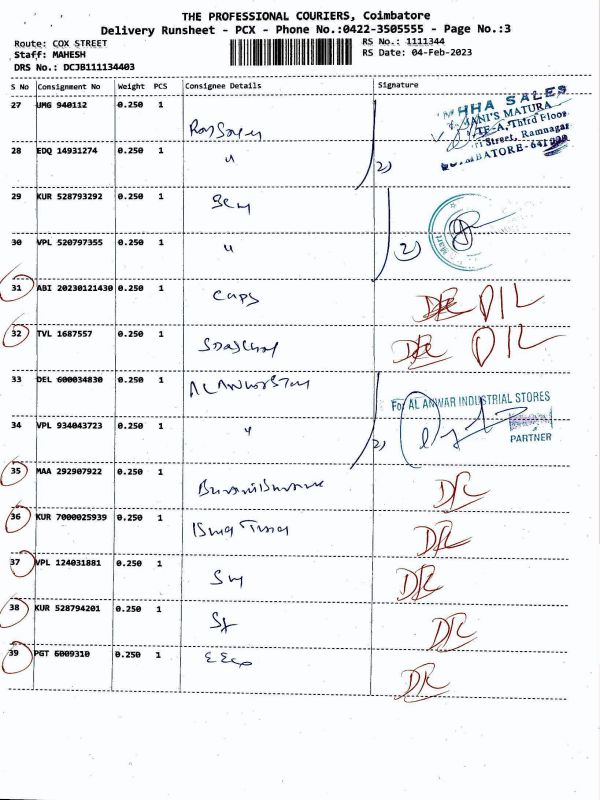 THE PROFESSIONAL COURIERS, Coimbatore
Delivery Runsheet - PCX - Phone No.:0422-3505555 - Page No.:3
Route: COX STREET
RS No.: 1111344
Staff: MAHESH
RS Date: 04-Feb-2023
DRS No.: DCJB111134403
S No Consignment No Weight PCS Consignee Details Signature
27 UMG 940112 0.250 1
28 EDQ 14931274 0.250 1 "
2)
HHA SALES
MANI'S MATURA
Third Floor
Street, Ramnagar
COIMBATORE-641
29 KUR 528793292 0.250 1
30 VPL 520797355 0.250 1 "
2)
31 ABI 20230121430 0.250 1 Caps D/L
32 TVL 1687557 0.250 1 D/L
33 DEL 600034830 0.250 1
For AL ANWAR INDUSTRIAL STORES
PARTNER
34 VPL 934043723 0.250 1 "
2)
35 MAA 292907922 0.250 1 DR
36 KUR 7000025939 0.250 1 DR
37 VPL 124031881 0.250 1 DR
38 KUR 528794201 0.250 1 DR
39 PGT 6009310 0.250 1 DR